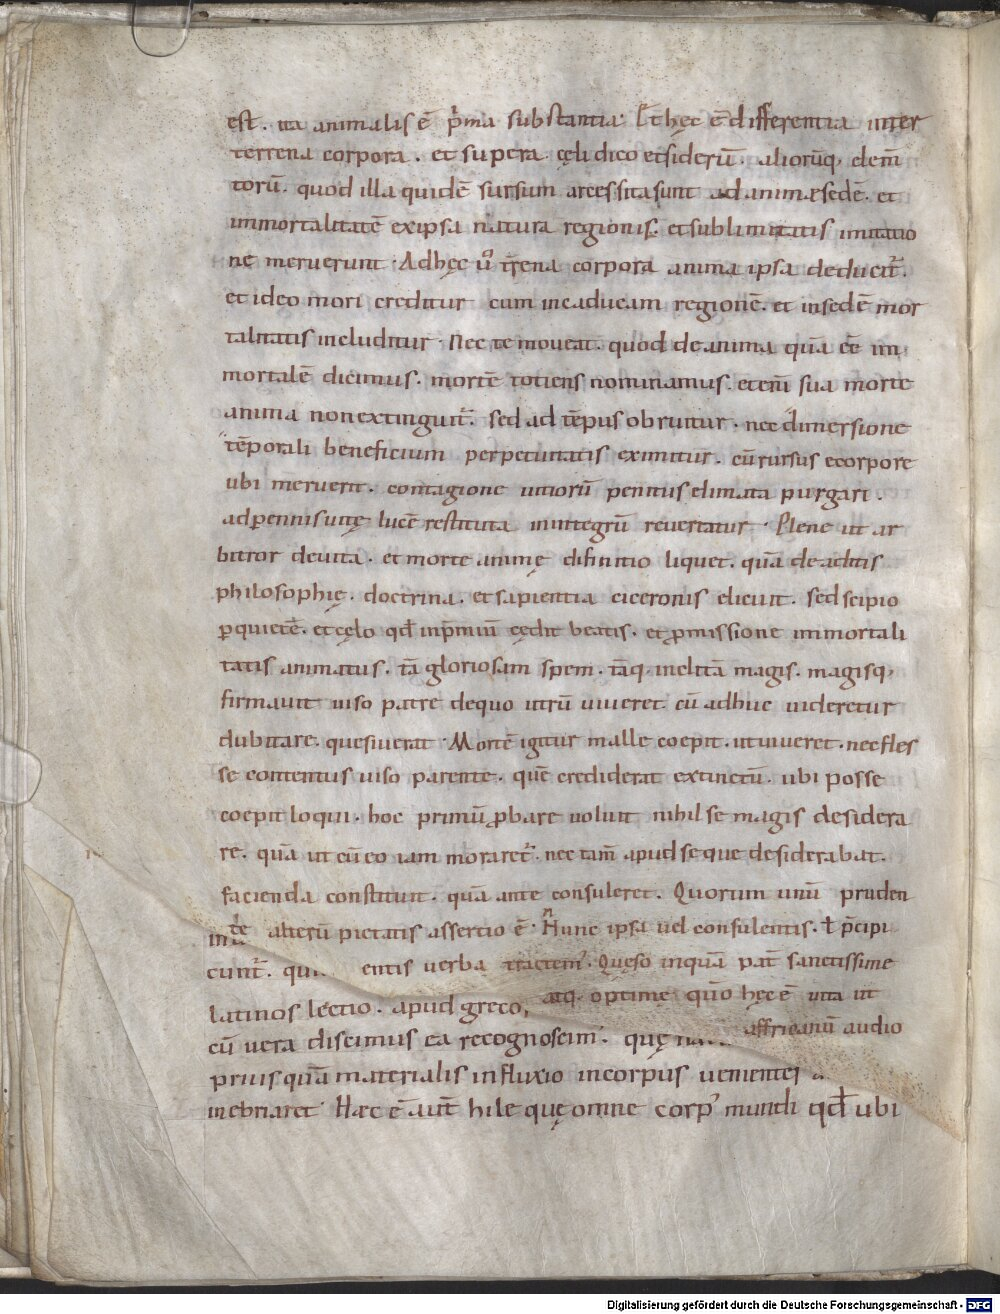 est. ita animalis ē p̄ma substantia. S; hęc ē differentia inter
terrena corpora. et supera. cęli dico et siderū. aliorūq; elem̄
torū. quod illa quidē sursum arcessita sunt ad animæ sedē. et
immortalitatē ex ipsa natura regionis. et sublimitatis imitatio
ne meruerunt. Ad hęc ū t̄rena corpora anima ipsa deducit̄.
et ideo mori creditur cum in caducam regionē. et in sedē mor
talitatis includitur. Nec te moueat. quod de anima quā ēē im
mortalē dicimus. mortē totiens nominamus. etenī sua morte
anima non extinguit̄. sed ad tēpus obruitur. nec dimersione
tēporali beneficium perpetuitatis eximitur. cū rursus e corpore
ubi meruerit. contagione uitiorū penitus elimata purgari.
ad ꝑennis uitę lucē restituta in integrū reuertatur. Plene ut ar
bitror de uita. et morte animę difinitio liquet. quā de aditis
philosophię. doctrina. et sapientia ciceronis elicuit. sed scipio
ꝑ quietē. et cęlo qd̄ in p̄miū cędit beatis. et ꝓmissione immortali
tatis animatus. tā gloriosam spem. tāq; inclitā magis. magisq;
firmauit uiso patre de quo utrū uiueret cū adhuc uideretur
dubitare. quesiuerat. Mortē igitur malle coepit. ut uiueret. nec fles
se contentus uiso parente. quē crediderat extinctū. ubi posse
coepit loqui. hoc primū ꝓbare uoluit nihil se magis desidera
re. quā ut cū eo iam moraret̄. nec tam̄ apud se que desiderabat.
facienda constituit. quā ante consuleret. Quorum unū pruden
alterū pietatis assertio ē. Nunc ipsa uel consulentis. ł p̄cipi
entis uerba tractem. Quęso inquā pat̄ sanctissime
atq; optime quo hęc ē uita ut
affricanū audio
latinos lectio. apud greco
cū uera discimus ea recognoscim. quę
prius quā materialis influxio in corpus uementes
inebriaret. Hæc ē aut̄ hile quę omne corp' mundi qd̄ ubi
Digitalisierung gefördert durch die Deutsche Forschungsgemeinschaft - DFG